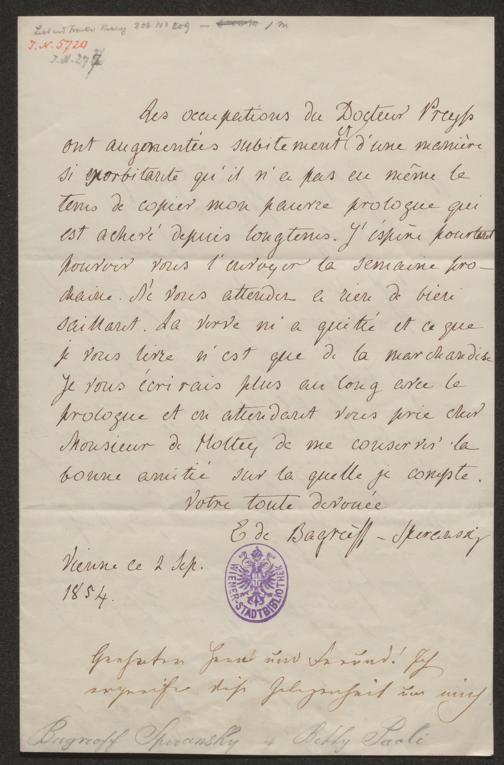 I.N. 5720
Les occupations du Docteur Preyss
ont augmentées subitement et d'une manière
si exorbitante qu'il n'a pas eu même le
tems de copier mon pauvre prologue qui
est achevé depuis longtems. J'éspère pourtant
pouvoir vous l'envoyer la semaine pro-
chaine. Ne vous attendez a rien de bien
saillant. La verve m'a quitté et ce que
je vous livre n'est que de la marchandise
Je vous écrirais plus au long avec le
prologue et en attendant vous prie cher
Monsieur de Holtey de me conserver la
bonne amitié sur la quelle je compte.
Votre toute devouée
E de Bagréeff-Speransky
Vienne ce 2 Sep.
1854.
WIENER-STADTBIBLIOTHEK
Geehrter Herr und Freund! Ich
ergreife diese Gelegenheit um mich
Bagreeff Speransky + Betty Paoli